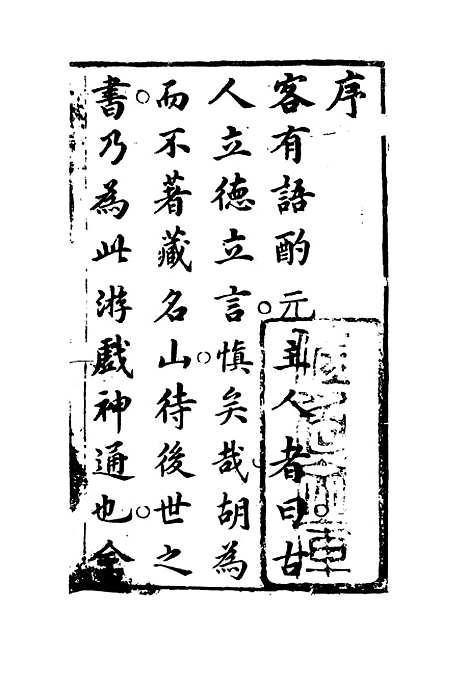 序
客有語酌元亭人者曰古
人立德立言慎矣哉胡為
而不著藏名山待後世之
書乃為此游戲神通也余